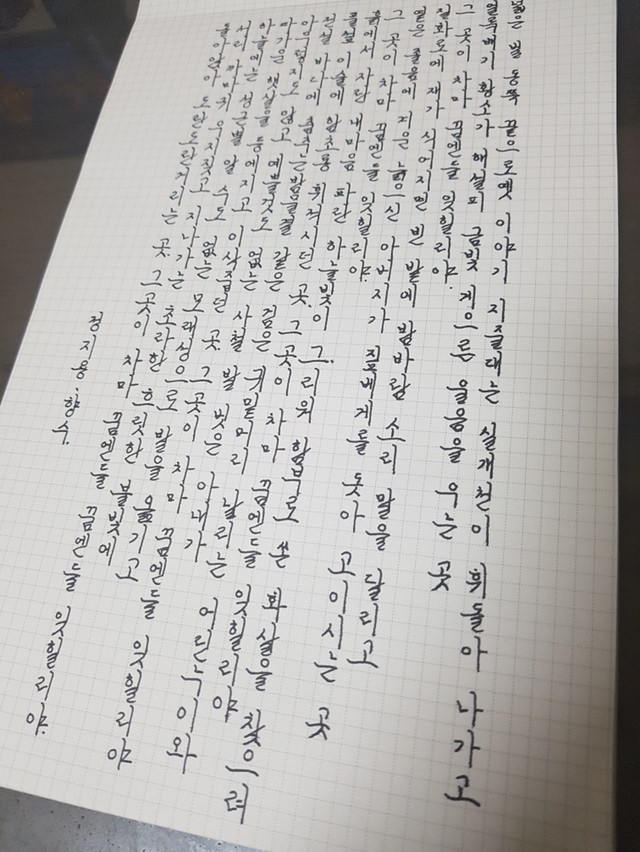 넓은 벌 동쪽 끝으로 옛 이야기 지줄대는 실개천이 휘돌아 나가고
얼룩배기 황소가 해설피 금빛 게으른 울음을 우는 곳
그 곳이 차마 꿈엔들 잊힐리야.
질화로에 재가 식어지면 빈 밭에 밤바람 소리 말을 달리고
엷은 졸음에 겨운 늙으신 아버지가 짚베개를 돋아 고이시는 곳
그 곳이 차마 꿈엔들 잊힐리야.
흙에서 자란 내 마음 파란 하늘빛이 그리워 함부로 쏜 화살을 찾으려
풀섶 이슬에 함초롬 휘적시던 곳. 그 곳이 차마 꿈엔들 잊힐리야.
전설 바다에 춤추는 밤물결 같은 검은 귀밑머리 날리는 어린 누이와
아무렇지도 않고 예쁠 것도 없는 사철 발 벗은 아내가
따가운 햇살을 등에 지고 이삭 줍던 곳 그 곳이 차마 꿈엔들 잊힐리야
하늘에는 성근 별 알 수도 없는 모래성으로 발을 옮기고
서리 까마귀 우지짖고 지나가는 초라한 흐릿한 불빛에
돌아앉아 도란도란거리는 곳 그 곳이 차마 꿈엔들 꿈엔들 잊힐리야.
정지용. 향수.